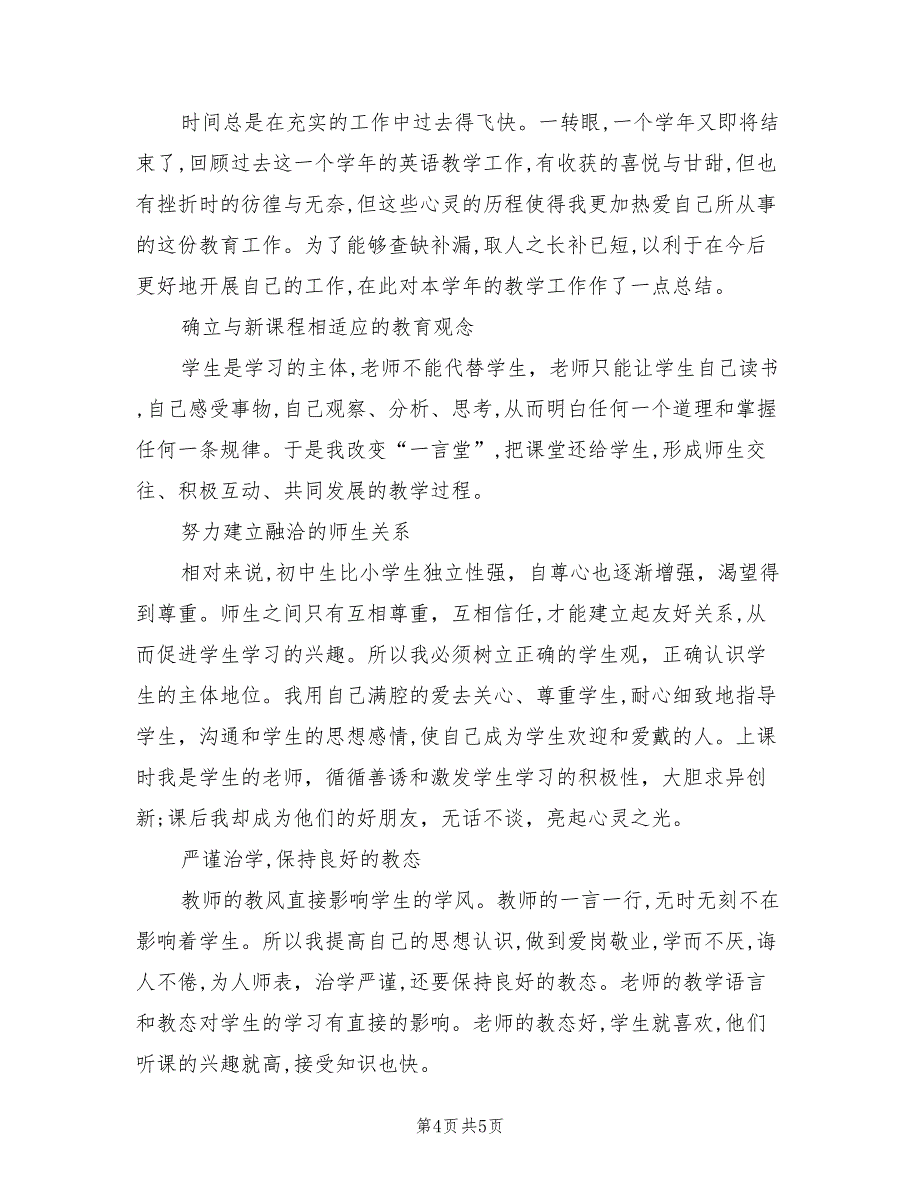 时间总是在充实的工作中过去得飞快。一转眼,一个学年又即将结
束了,回顾过去这一个学年的英语教学工作,有收获的喜悦与甘甜,但也
有挫折时的彷徨与无奈,但这些心灵的历程使得我更加热爱自己所从事
的这份教育工作。为了能够查缺补漏,取人之长补已短,以利于在今后
更好地开展自己的工作,在此对本学年的教学工作作了一点总结。
确立与新课程相适应的教育观念
学生是学习的主体,老师不能代替学生，老师只能让学生自己读书
,自己感受事物,自己观察、分析、思考,从而明白任何一个道理和掌握
任何一条规律。于是我改变“一言堂”,把课堂还给学生,形成师生交
往、积极互动、共同发展的教学过程。
努力建立融洽的师生关系
相对来说,初中生比小学生独立性强，自尊心也逐渐增强，渴望得
到尊重。师生之间只有互相尊重，互相信任,才能建立起友好关系,从
而促进学生学习的兴趣。所以我必须树立正确的学生观，正确认识学
生的主体地位。我用自己满腔的爱去关心、尊重学生,耐心细致地指导
学生，沟通和学生的思想感情,使自己成为学生欢迎和爱戴的人。上课
时我是学生的老师，循循善诱和激发学生学习的积极性，大胆求异创
新;课后我却成为他们的好朋友，无话不谈，亮起心灵之光。
严谨治学,保持良好的教态
教师的教风直接影响学生的学风。教师的一言一行,无时无刻不在
影响着学生。所以我提高自己的思想认识,做到爱岗敬业,学而不厌,诲
人不倦,为人师表，治学严谨,还要保持良好的教态。老师的教学语言
和教态对学生的学习有直接的影响。老师的教态好,学生就喜欢,他们
听课的兴趣就高,接受知识也快。
第4页共5页